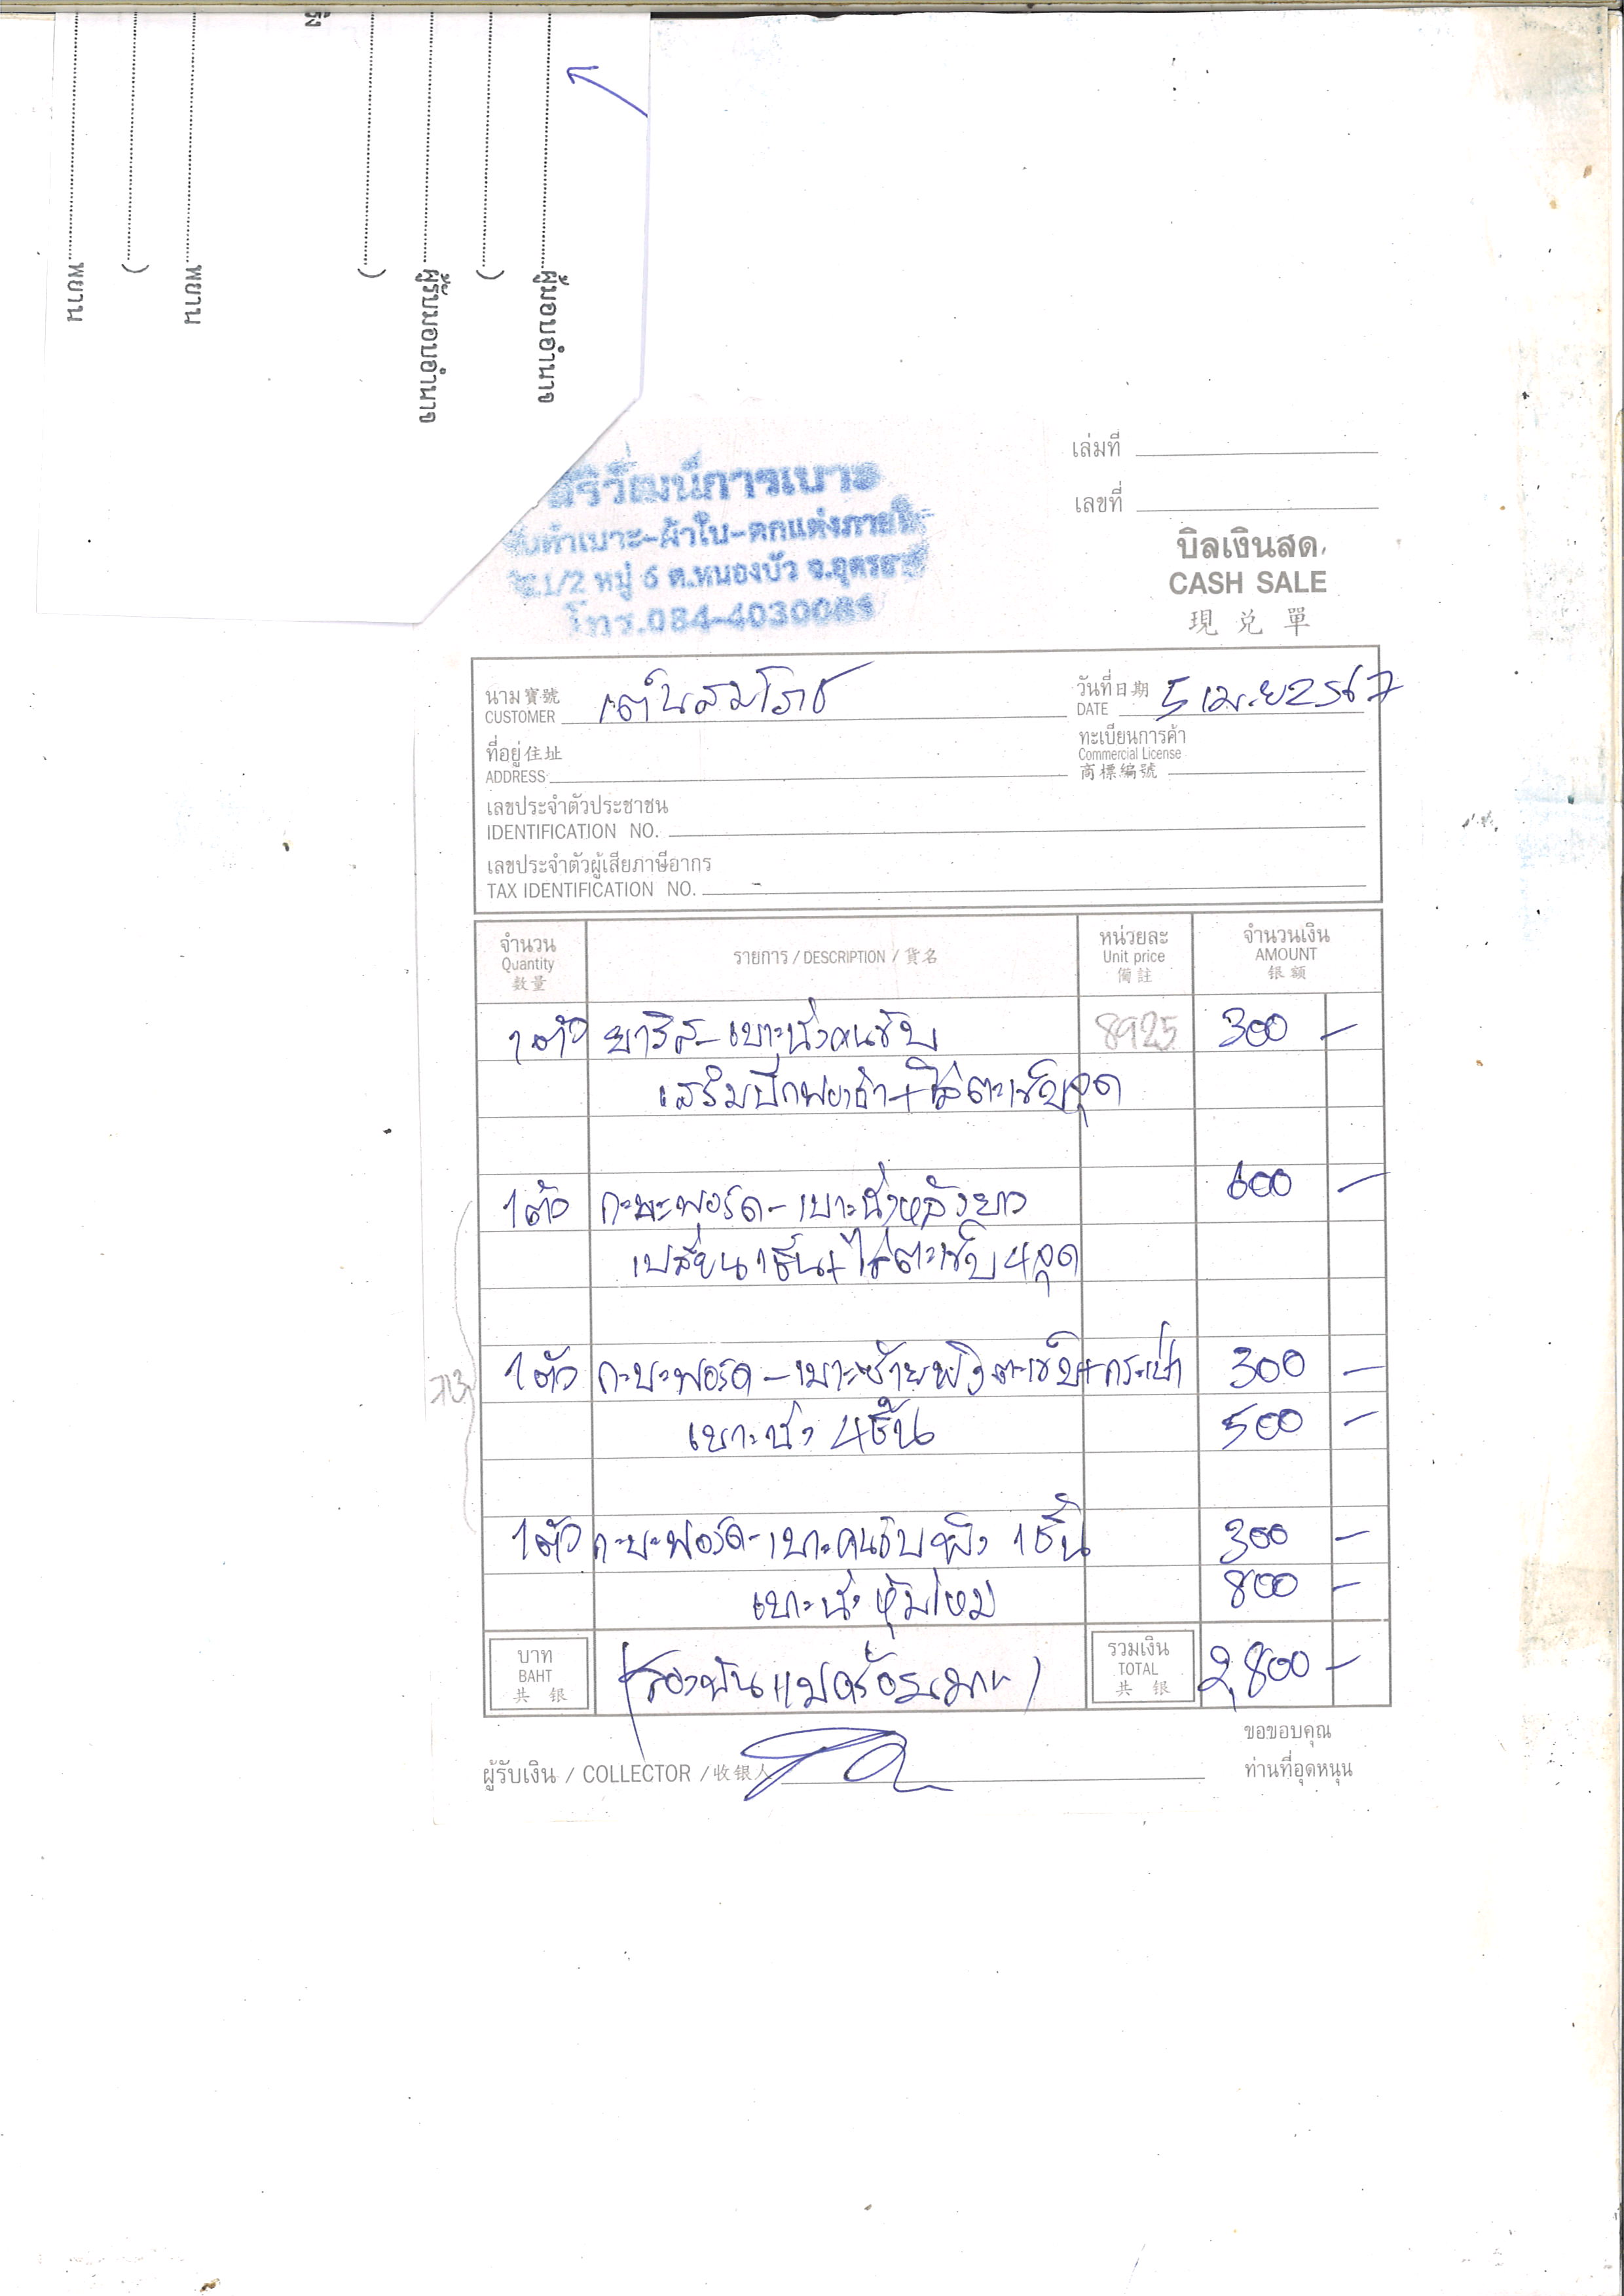 ผู้มอบอำนาจ
)
ผู้รับมอบอำนาจ
)
พยาน
)
พยาน
ศิริวัฒน์การเบาะ
รับทำเบาะ-ผ้าใบ-ตกแต่งภายใน
1/2 หมู่ 6 ต.หนองบัว จ.อุดรธานี
โทร.084-4030086
เล่มที่
เลขที่
บิลเงินสด
CASH SALE
現兌單
นาม 寶號
CUSTOMER เต๊นสมโภช
วันที่ 日期
DATE 5 เม.ย 2567
ที่อยู่ 住址
ADDRESS
ทะเบียนการค้า
Commercial License
商標編號
เลขประจำตัวประชาชน
IDENTIFICATION NO.
เลขประจำตัวผู้เสียภาษีอากร
TAX IDENTIFICATION NO.
จำนวน
Quantity
数量
รายการ / DESCRIPTION / 貨名
หน่วยละ
Unit price
備註
จำนวนเงิน
AMOUNT
银额
1ตัว ยาริส-เบาะนั่งคนขับ 8925 300 -
เสริมปีกฟองน้ำ+ไล่ตะเข็บจุด
1ตัว กะบะฟอร์ด-เบาะนั่งหลังยาว 600 -
เปลี่ยน 1ชิ้น+ไล่ตะเข็บ 4จุด
1ตัว กะบะฟอร์ด-เบาะซ้ายพิงตะเข็บ+กระเป๋า 300 -
เบาะนั่ง 4ชิ้น 500 -
1ตัว กะบะฟอร์ด-เบาะคนขับพิง 1ชิ้น 300 -
เบาะนั่งหุ้มใหม่ 800 -
บาท
BAHT
共 银
(สองพันแปดร้อยบาท)
รวมเงิน
TOTAL
共 银
2,800 -
ขอขอบคุณ
ท่านที่อุดหนุน
ผู้รับเงิน / COLLECTOR / 收银人